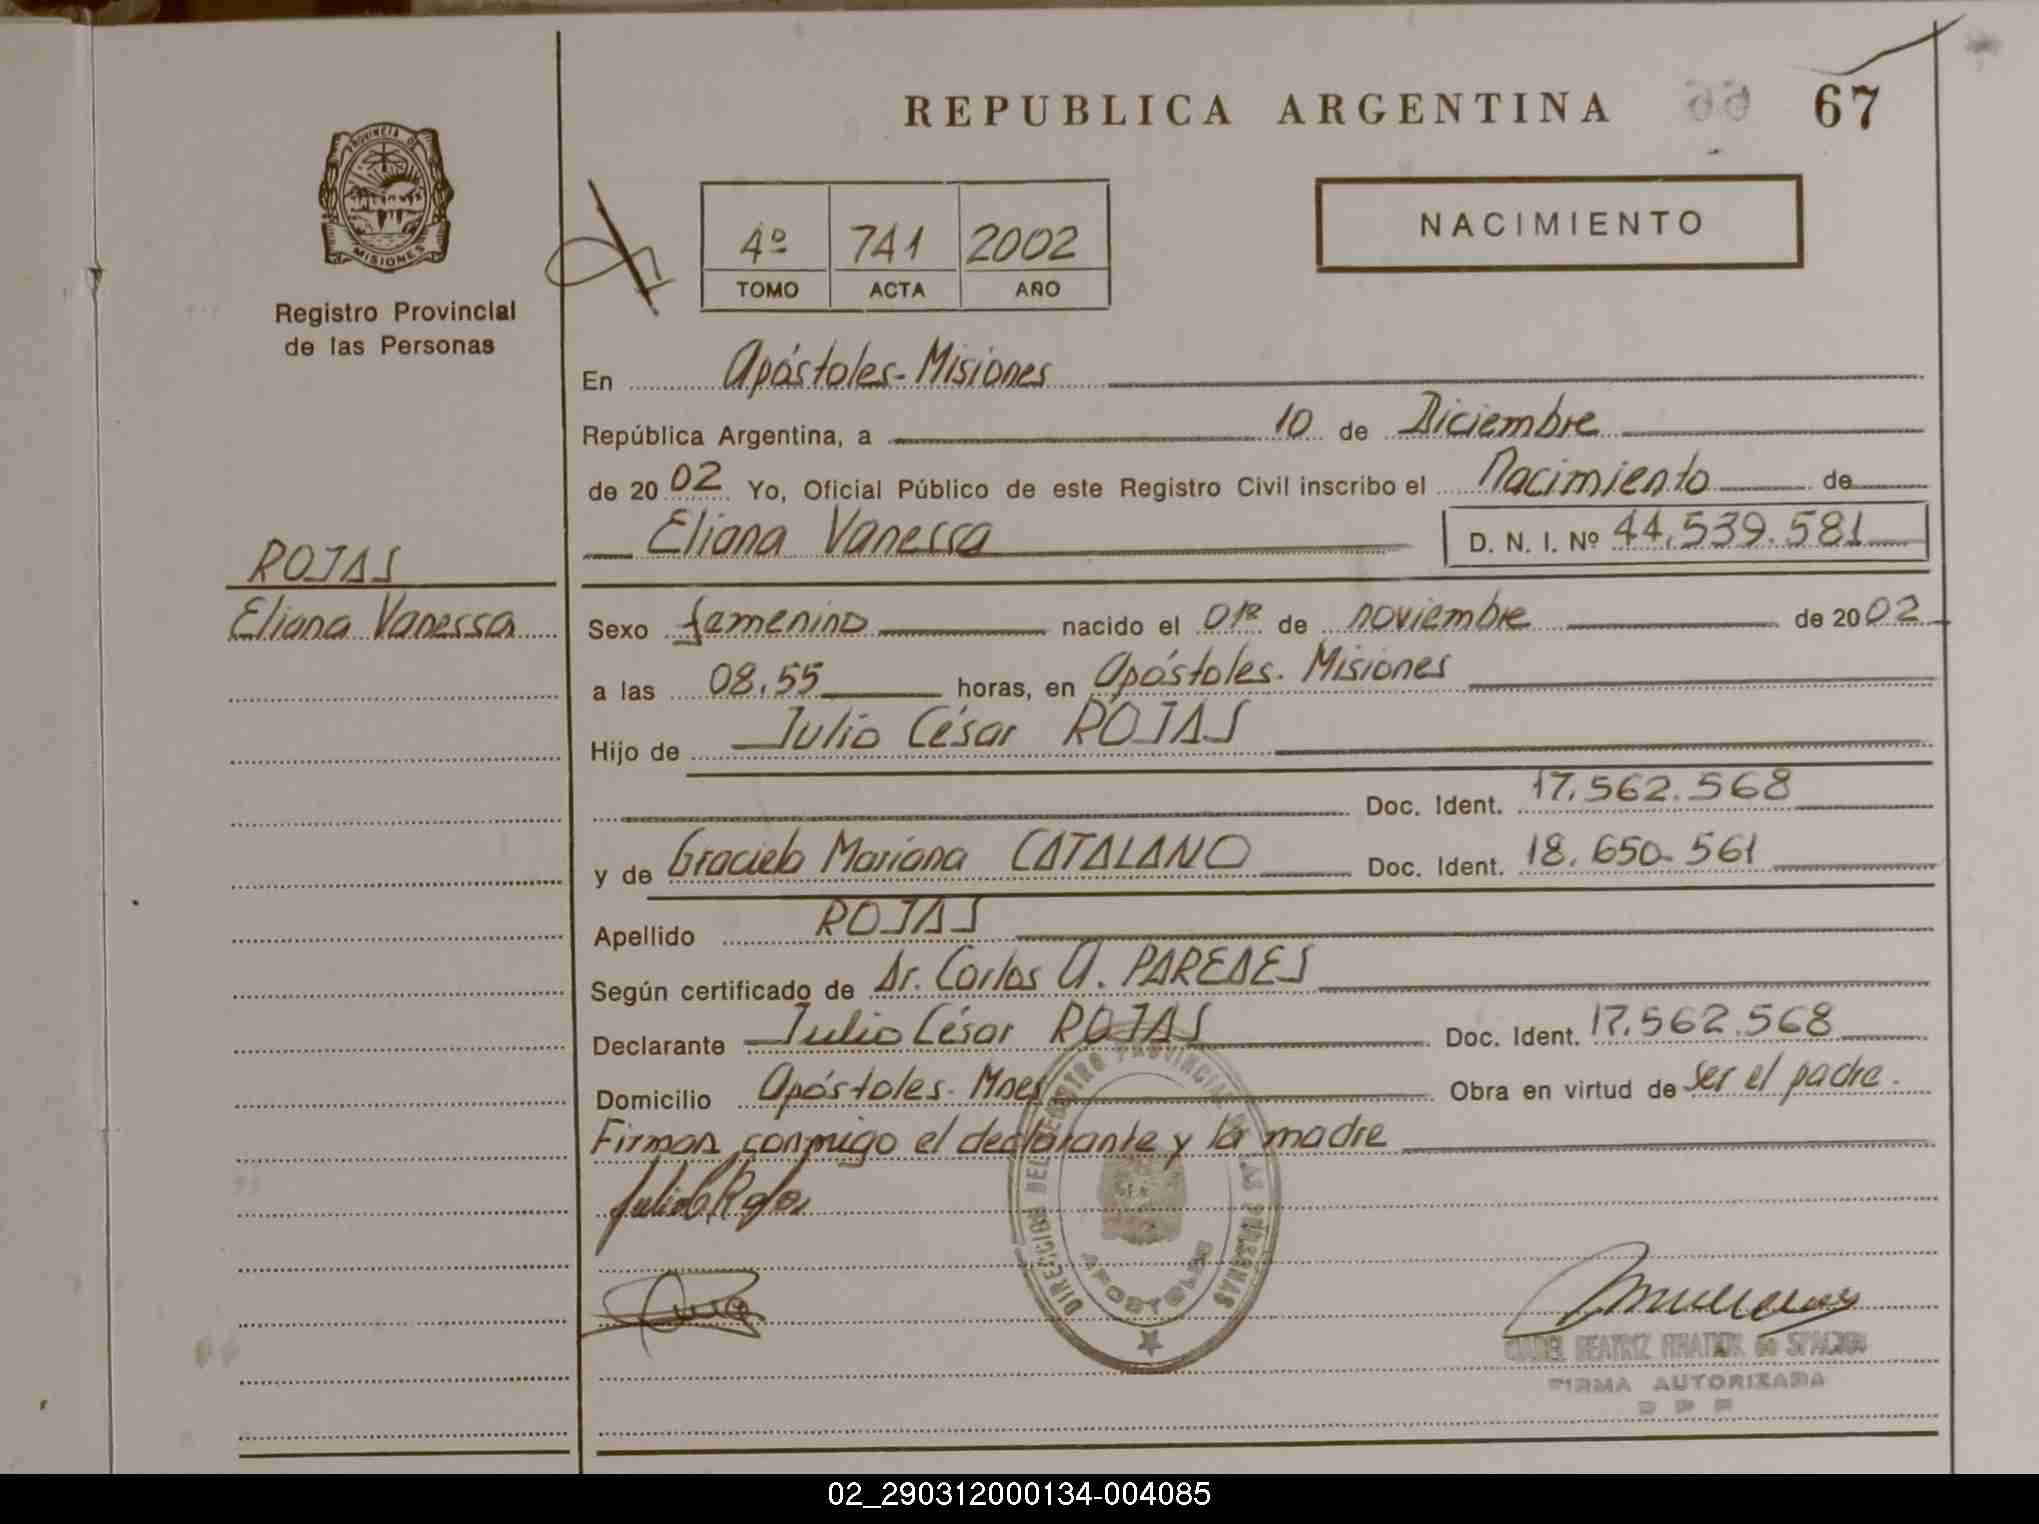 REPUBLICA ARGENTINA 67
PROVINCIA DE
MISIONES
Registro Provincial
de las Personas
4º 741 2002
TOMO ACTA AÑO
NACIMIENTO
En Apóstoles-Misiones
República Argentina, a 10 de Diciembre
de 2002 Yo, Oficial Público de este Registro Civil inscribo el Nacimiento de
Eliana Vanessa D. N. I. Nº 44.539.581
ROJAS
Eliana Vanessa
Sexo femenino nacido el 01º de noviembre de 2002
a las 08.55 horas, en Apóstoles-Misiones
Hijo de Julio César ROJAS
Doc. Ident. 17.562.568
y de Graciela Mariana CATALANO Doc. Ident. 18.650.561
Apellido ROJAS
Según certificado de Dr. Carlos A. PAREDES
Declarante Julio César ROJAS Doc. Ident. 17.562.568
Domicilio Apóstoles-Mnes Obra en virtud de ser el padre.
Firman conmigo el declarante y la madre
DIRECCION DEL REGISTRO PROVINCIAL DE LAS PERSONAS
APOSTOLES
BEATRIZ de
FIRMA AUTORIZADA
02_290312000134-004085